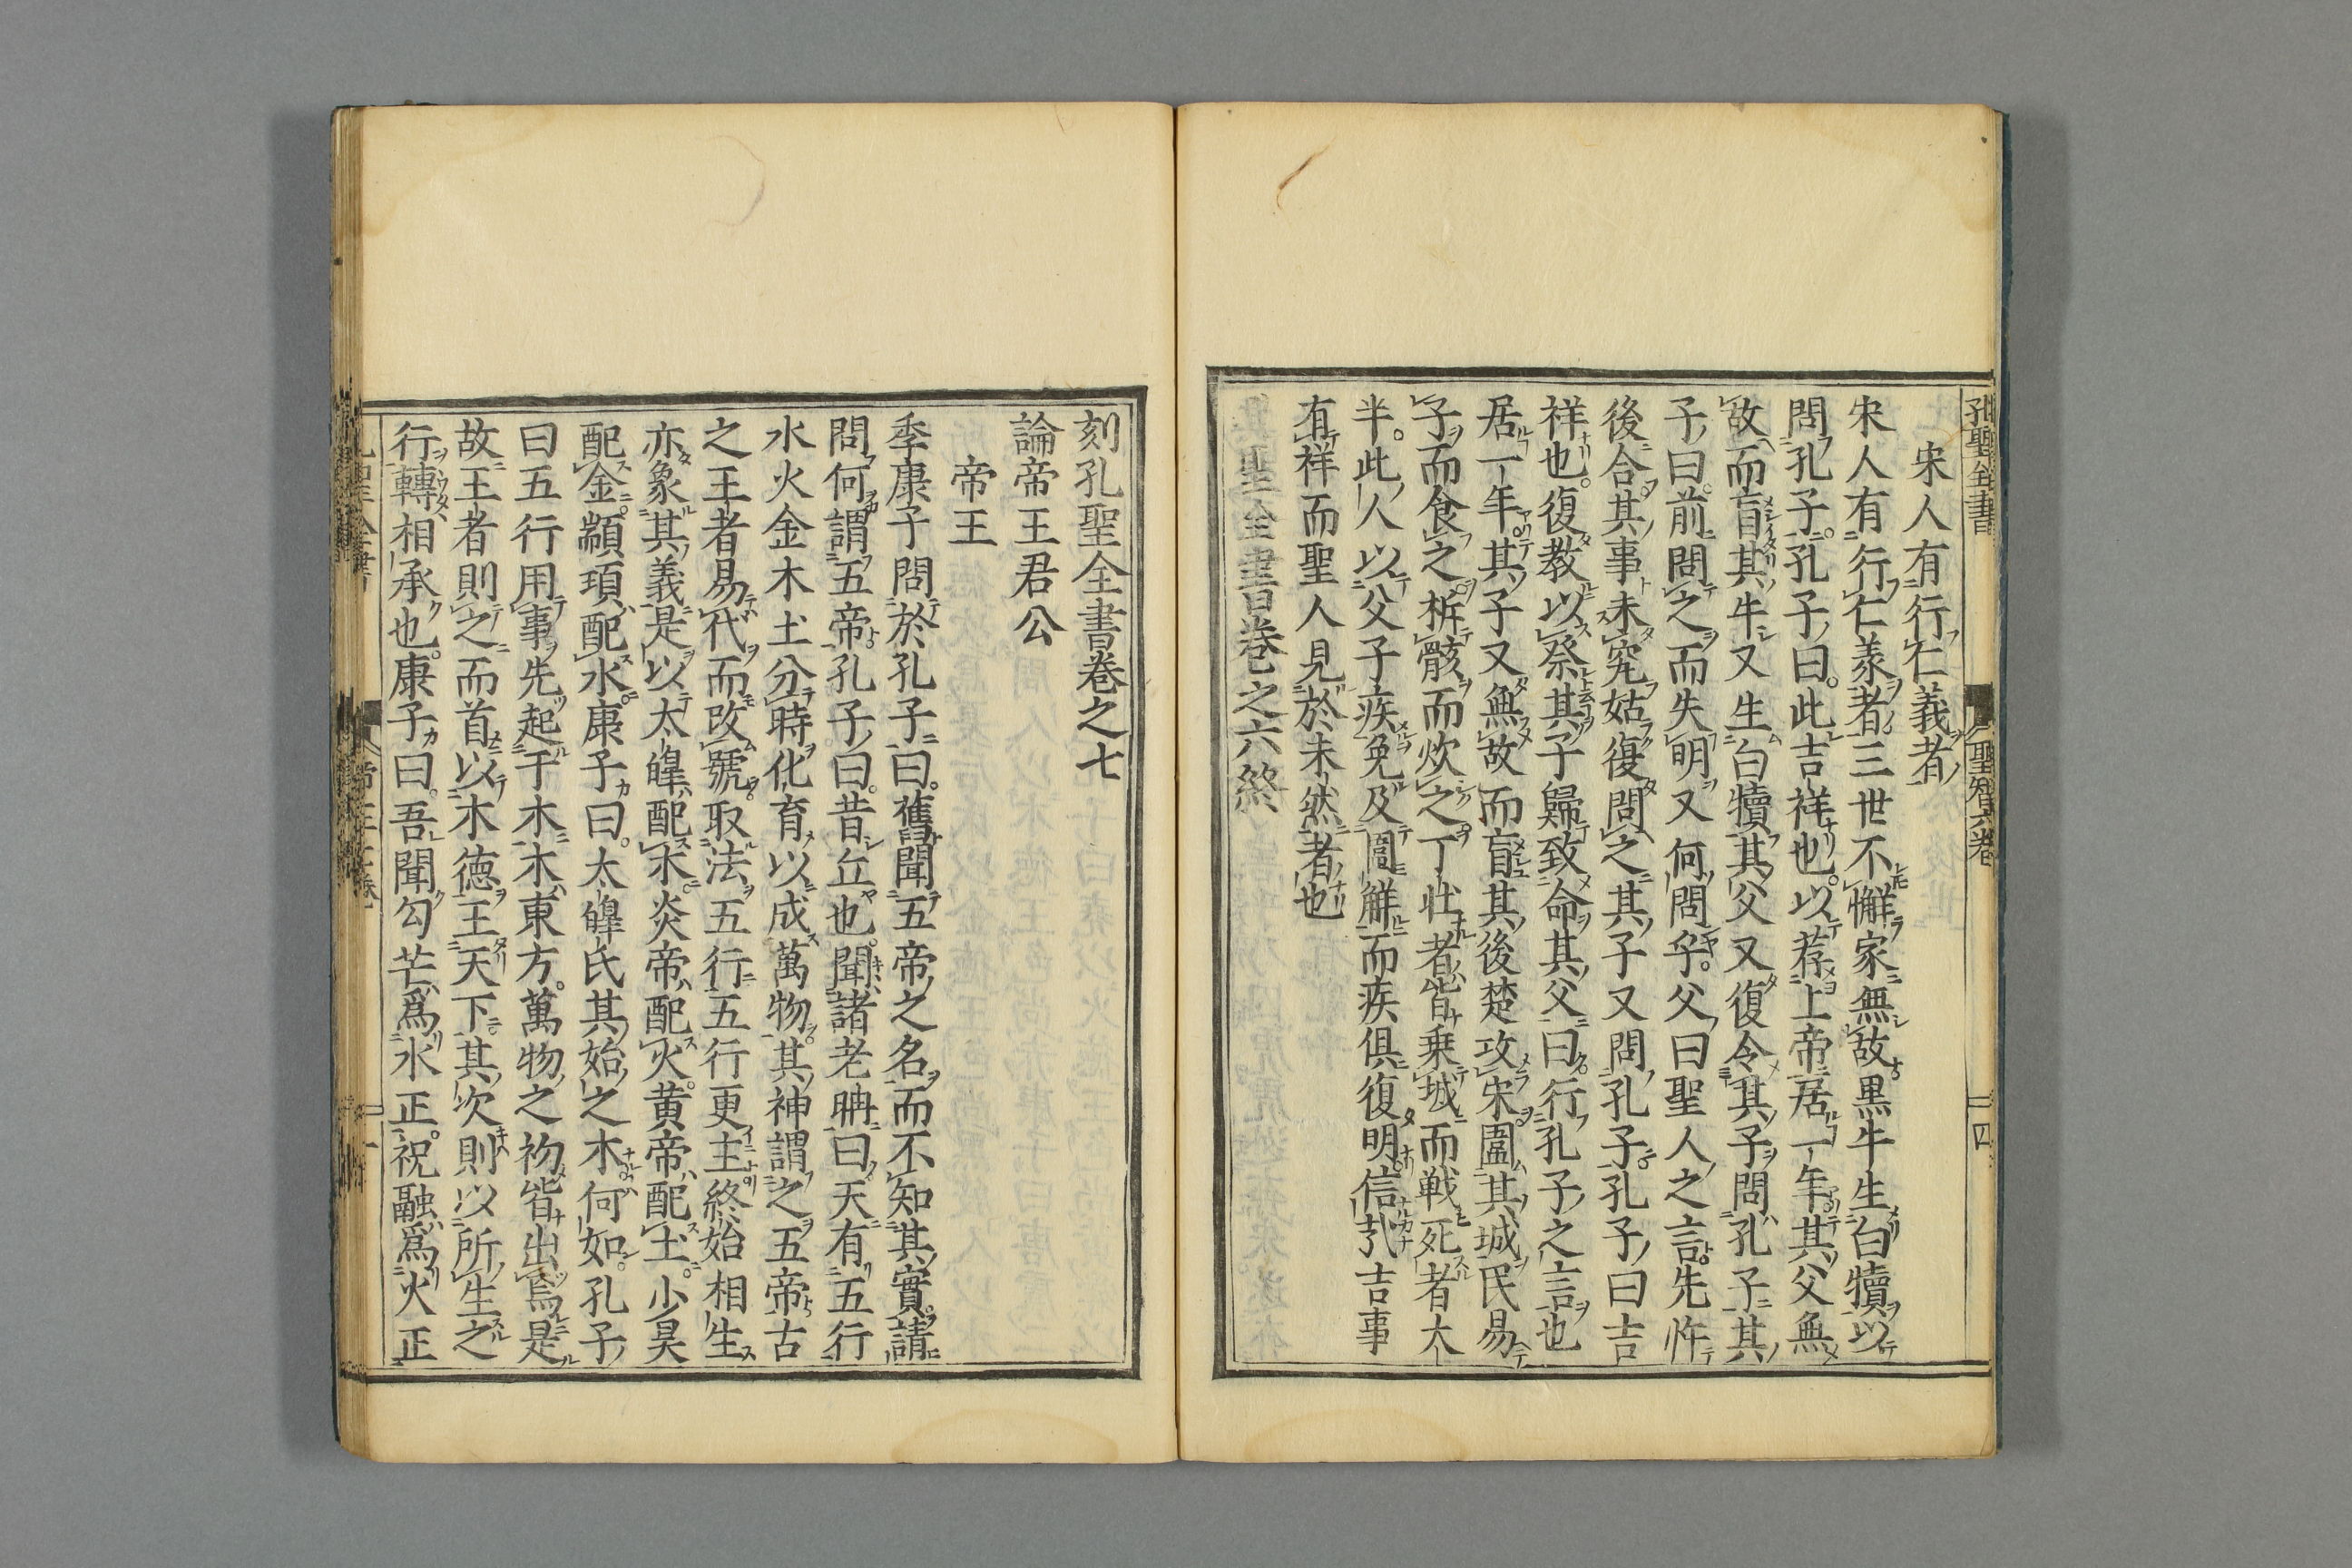 孔聖全書 聖智六卷 四
宋人有行仁義者
宋人有行仁義者三世不懈家無故黒牛生白犢以
問孔子孔子曰此吉祥也以荐上帝居一年其父無
故而盲其牛又生白犢其父又復令其子問孔子其
子曰前問之而失明又何問乎父曰聖人之言先忤
後合其事未究姑復問之其子又問孔子孔子曰吉
祥也復教以祭其子歸致命其父曰行孔子之言也
居一年其子又無故而盲其後楚攻宋圍其城民易
子而食之析骸而炊之丁壮者皆乗城而戦死者太
半此人以父子疾免及圍解而疾俱復明信乎吉事
有祥而聖人見於未然者也
孔聖全書卷之六終
刻孔聖全書卷之七
論帝王君公
帝王
季康子問於孔子曰舊聞五帝之名而不知其實請
問何謂五帝孔子曰昔丘也聞諸老聃曰天有五行
水火金木土分時化育以成萬物其神謂之五帝古
之王者易代而改號取法五行五行更主終始相生
亦象其義是以太皡配木炎帝配火黄帝配土少昊
配金顓頊配水康子曰太皡氏其始之木何如孔子
曰五行用事先起于木木東方萬物之初皆出焉是
故王者則之而首以木德王天下其次則以所生之
行轉相承也康子曰吾聞勾芒爲木正祝融爲火正